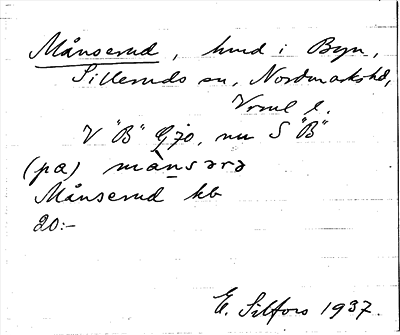 Månserud, hmd i Byn,
Silleruds sn, Nordmarks hd,
Vrml l.
V "B" Gjo, nu S "B"
(pa) mànsərə
Månserud kb
20:-
E. Silfors 1937.